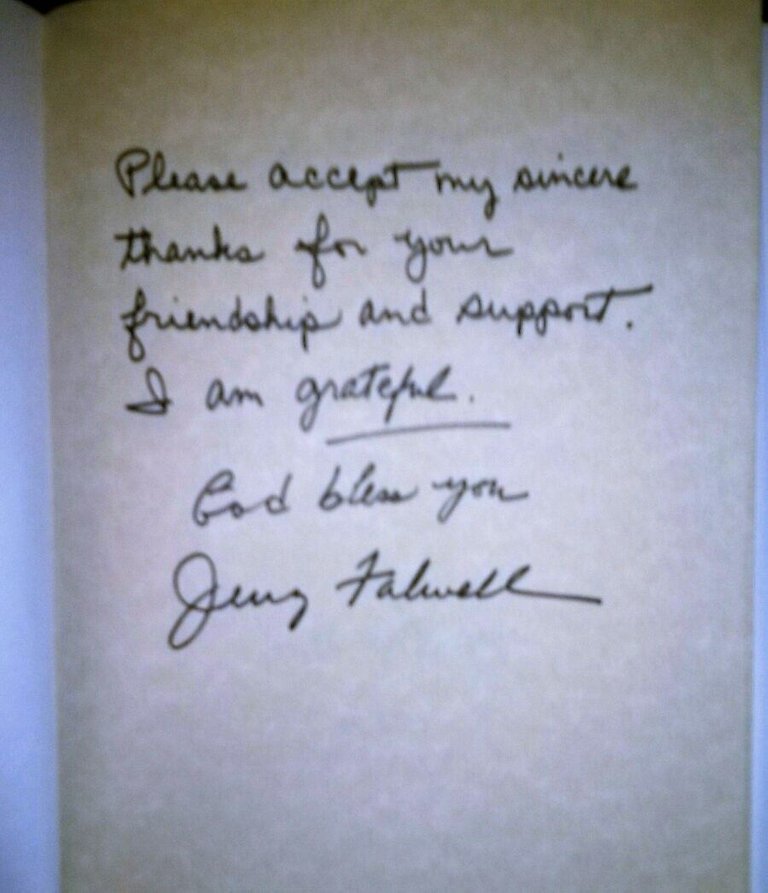 Please accept my sincere
thanks for your
friendship and support.
I am grateful.
God bless you
Jerry Falwell